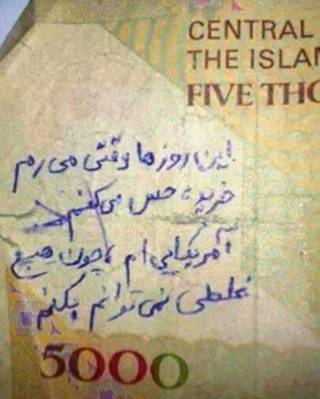 CENTRAL
THE ISLA
FIVE THO
این روزها وقتی می رم
خرید، حس می کنم
آمریکایی ام، چون هیچ
غلطی نمی توانم بکنم
5000